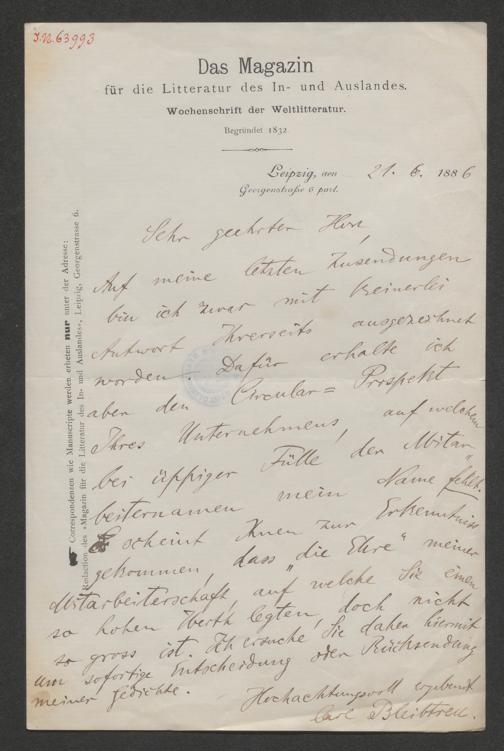 J.N. 63993
Das Magazin
für die Litteratur des In- und Auslandes.
Wochenschrift der Weltlitteratur.
Begründet 1832.
Leipzig, den 21. 6. 1886
Georgenstraße 6 part.
☛ Correspondenzen wie Manuscripte werden erbeten nur unter der Adresse:
Redaction des »Magazin für die Litteratur des In- und Auslandes«, Leipzig, Georgenstrasse 6.
Sehr geehrter Herr,
Auf meine letzten Zusendungen
bin ich zwar mit keinerlei
Antwort Ihrerseits ausgezeichnet
worden. Dafür erhalte ich
aber den Circular=Prospekt
Ihres Unternehmens, auf welchem
bei üppiger Fülle der Mitar-
beiternamen mein Name fehlt.
Es scheint Ihnen zur Erkenntniss
gekommen, dass „die Ehre“ meiner
Mitarbeiterschaft, auf welche Sie einen
so hohen Werth legten, doch nicht
so gross ist. Ich ersuche Sie daher hiermit
um sofortige Entscheidung oder Rücksendung
meiner Gedichte.
Hochachtungsvoll ergebenst
Carl Bleibtreu.